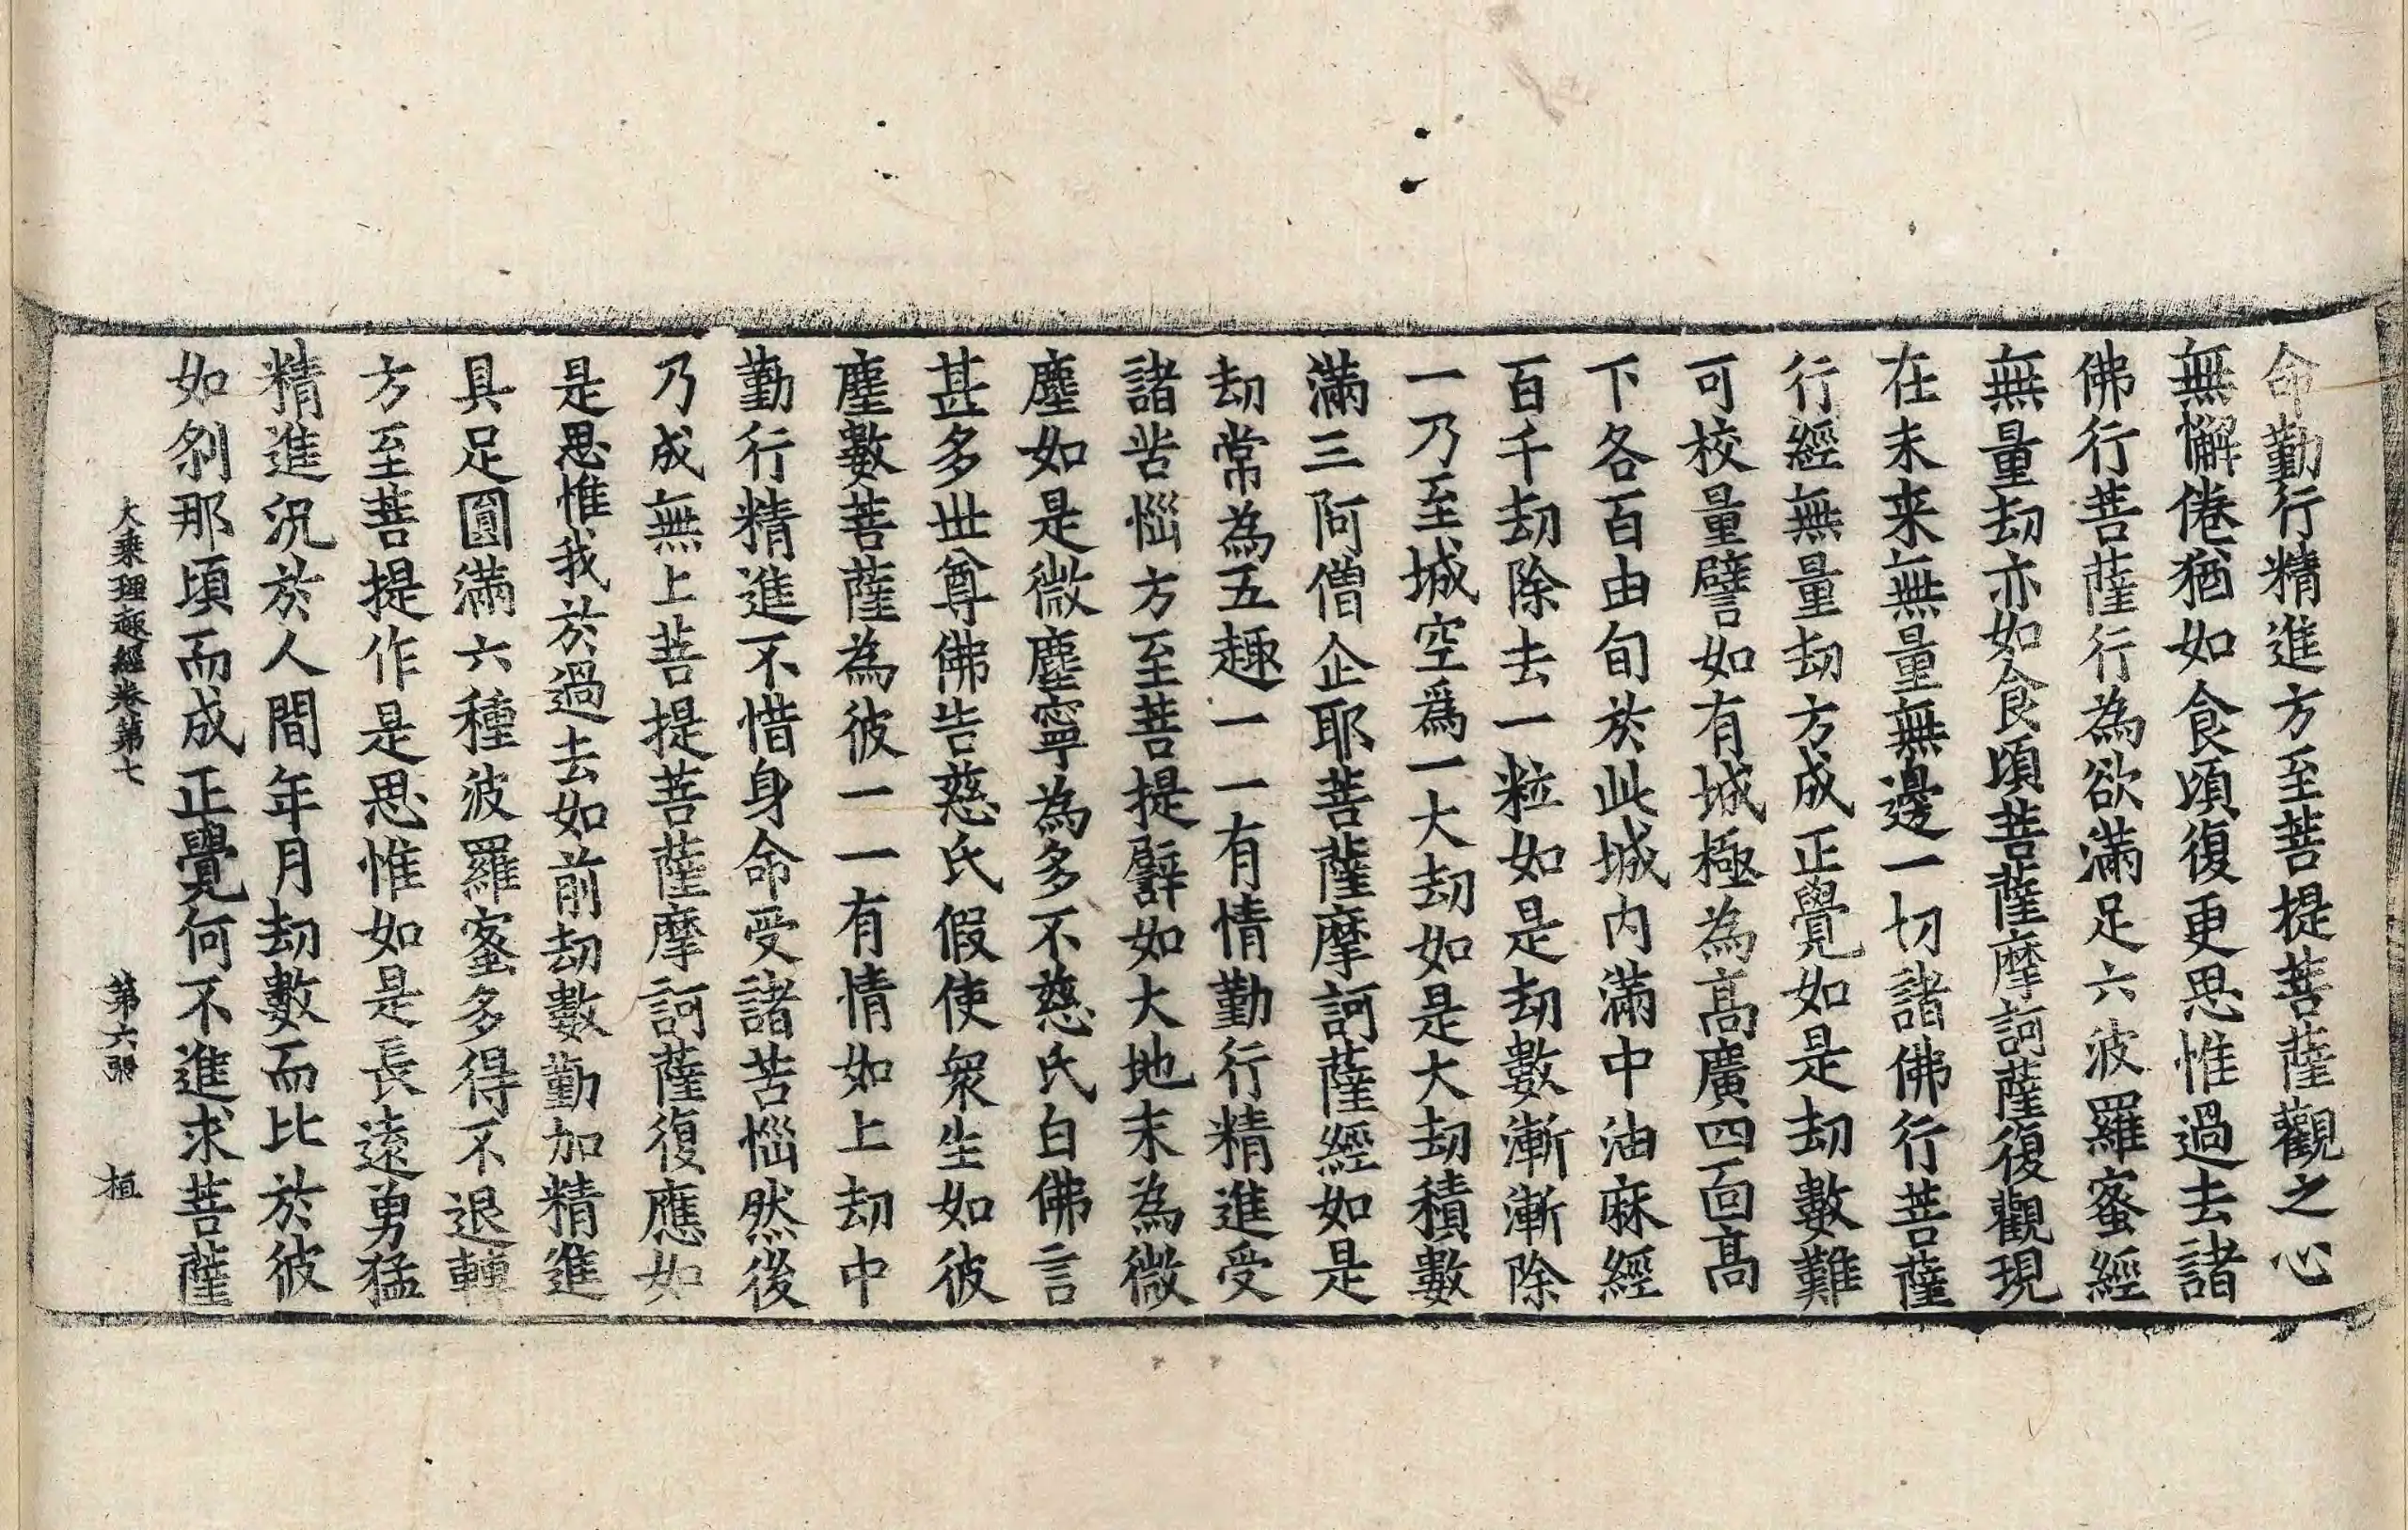 命勤行精進方至菩提菩薩觀之心
無懈倦猶如食頃復更思惟過去諸
佛行菩薩行為欲滿足六波羅蜜經
無量劫亦如食頃菩薩摩訶薩復觀現
在未来無量無邊一切諸佛行菩薩
行經無量劫方成正覺如是劫數難
可校量譬如有城極為髙廣四面髙
下各百由旬於此城内滿中油麻經
百千劫除去一粒如是劫數漸漸除
一乃至城空爲一大劫如是大劫積數
滿三阿僧企耶菩薩摩訶薩經如是
劫常為五趣一一有情勤行精進受
諸苦惱方至菩提譬如大地末為微
塵如是微塵寧為多不慈氏白佛言
甚多世尊佛告慈氏假使衆生如彼
塵數菩薩為彼一一有情如上劫中
勤行精進不惜身命受諸苦惱然後
乃成無上菩提菩薩摩訶薩復應如
是思惟我於過去如前劫數勤加精進
具足圓滿六種波羅蜜多得不退轉
方至菩提作是思惟如是長遠勇猛
精進況於人間年月劫數而比於彼
如刹那頃而成正覺何不進求菩薩
大乘理趣經卷第七 第六張 植